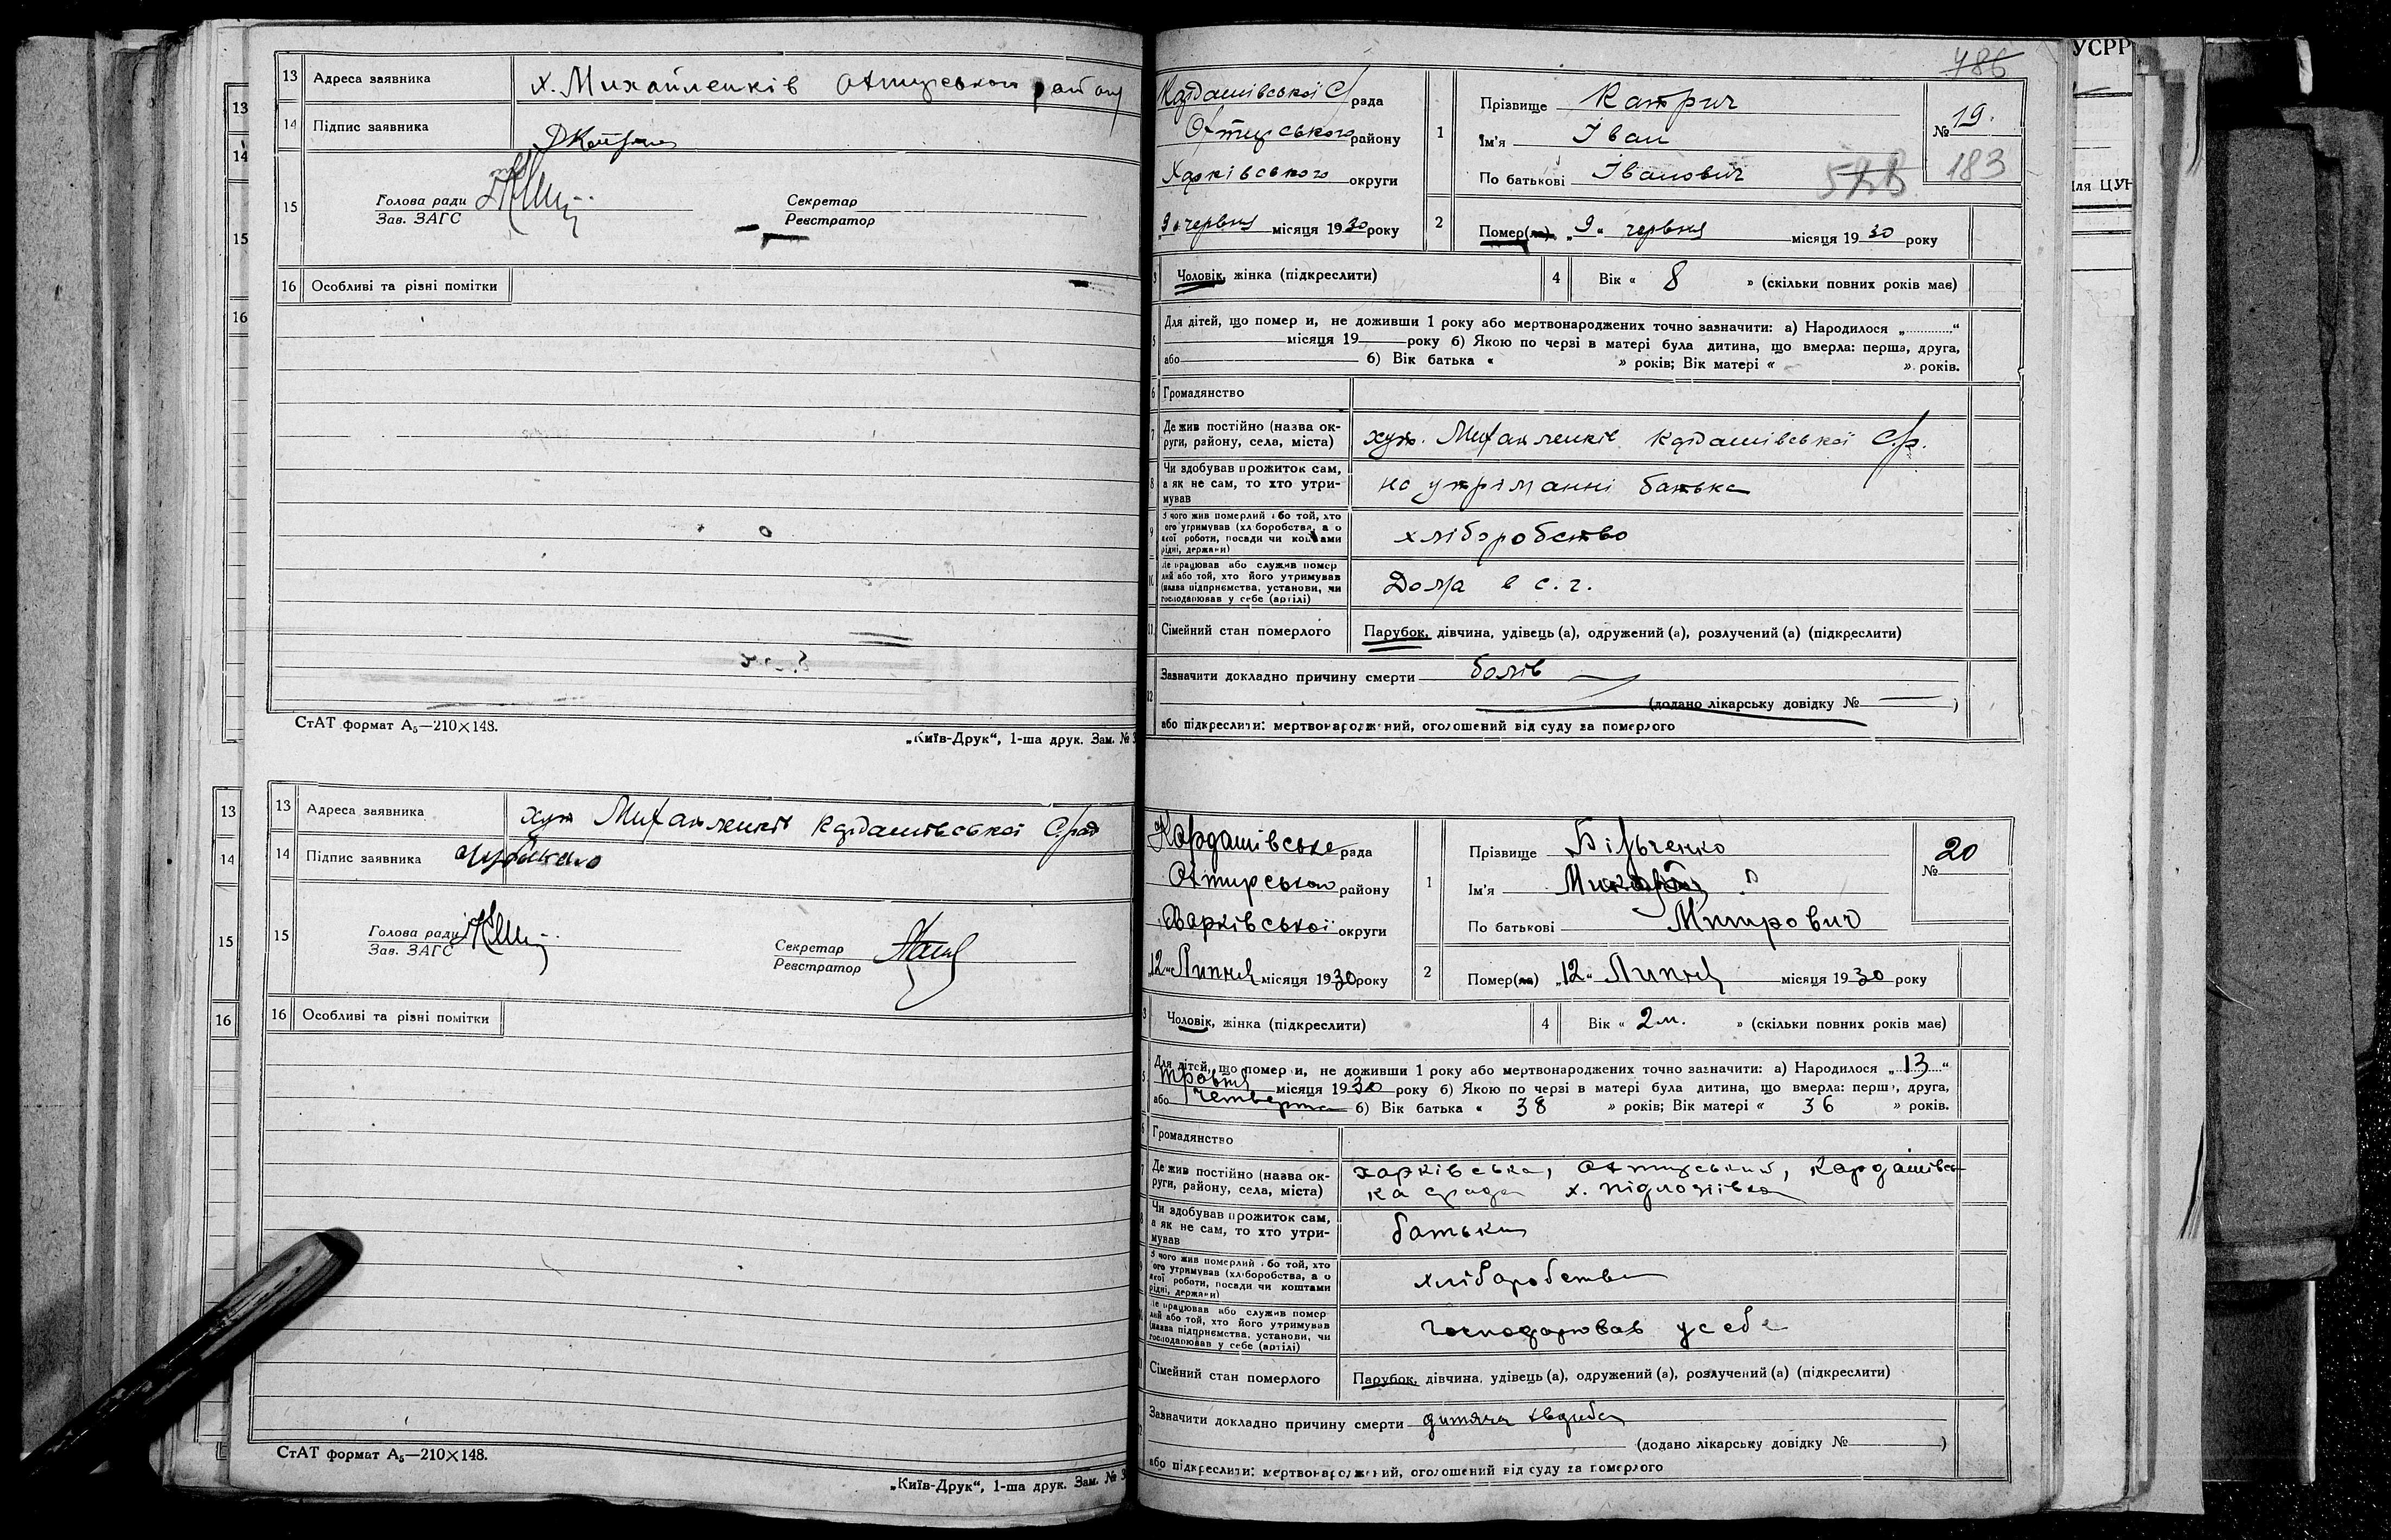 13 Адреса заявника х. Михайленків Охтирського району
14 Підпис заявника
15 Голова ради Секретар
Зав. ЗАГС Реєстратор
16 Особливі та різні помітки
СтАТ формат А₅—210×148.
„Київ-Друк“, 1-ша друк. Зам. № 3
13 Адреса заявника хут Михайленків Кардашівської С/рад
14 Підпис заявника
15 Голова ради Секретар
Зав. ЗАГС Реєстратор
16 Особливі та різні помітки
СтАТ формат А₅—210×148.
„Київ-Друк“, 1-ша друк. Зам. № 3
486
Кардашівської С/рада
Охтирського району
Харківського округи
„9“ червня місяця 1930 року
1 Прізвище Катрич
Ім'я Іван
По батькові Іванович
№ 19.
183
2 Помер(ла) „9“ червня місяця 1930 року
3 Чоловік, жінка (підкреслити) 4 Вік « 8 » (скільки повних років має)
5 Для дітей, що померли, не доживши 1 року або мертвонароджених точно зазначити: а) Народилося „............“
місяця 19 року б) Якою по черзі в матері була дитина, що вмерла: перша, друга,
або б) Вік батька « » років; Вік матері « » років.
6 Громадянство
7 Де жив постійно (назва округи, району, села, міста) хут. Михайленків Кардашівської С/р.
8 Чи здобував прожиток сам, а як не сам, то хто утримував на утриманні батька
9 З чого жив померлий або той, хто його утримував (хліборобства, або якої роботи, посади чи коштами рідні, держави) хліборобство
10 Де працював або служив померлий або той, хто його утримував (назва підприємства, установи, чи господарював у себе (артілі) Дома в с. г.
11 Сімейний стан померлого Парубок, дівчина, удівець (а), одружений (а), розлучений (а) (підкреслити)
12 Зазначити докладно причину смерти болів
(додано лікарську довідку № — )
або підкреслити: мертвонароджений, оголошений від суду за померлого
Кардашівське рада
Охтирського району
Харківської округи
„12“ Липня місяця 1930 року
1 Прізвище Більченко
Ім'я
По батькові Митрович
№ 20
2 Помер(ла) „12“ Липня місяця 1930 року
3 Чоловік, жінка (підкреслити) 4 Вік « 2 м. » (скільки повних років має)
5 Для дітей, що померли, не доживши 1 року або мертвонароджених точно зазначити: а) Народилося „13“
травня місяця 1930 року б) Якою по черзі в матері була дитина, що вмерла: перша, друга,
або четверта б) Вік батька « 38 » років; Вік матері « 36 » років.
6 Громадянство
7 Де жив постійно (назва округи, району, села, міста) харківська, Охтирський, Кардашівсь-
ка с рада х. Підлозіївка
8 Чи здобував прожиток сам, а як не сам, то хто утримував батьки
9 З чого жив померлий або той, хто його утримував (хліборобства, або якої роботи, посади чи коштами рідні, держави) хліборобства
10 Де працював або служив померлий або той, хто його утримував (назва підприємства, установи, чи господарював у себе (артілі) господарював у себе
11 Сімейний стан померлого Парубок, дівчина, удівець (а), одружений (а), розлучений (а) (підкреслити)
12 Зазначити докладно причину смерти дитяча хвороба
(додано лікарську довідку № )
або підкреслити: мертвонароджений, оголошений від суду за померлого
УСРР
13
14
15
16
13
14
15
16